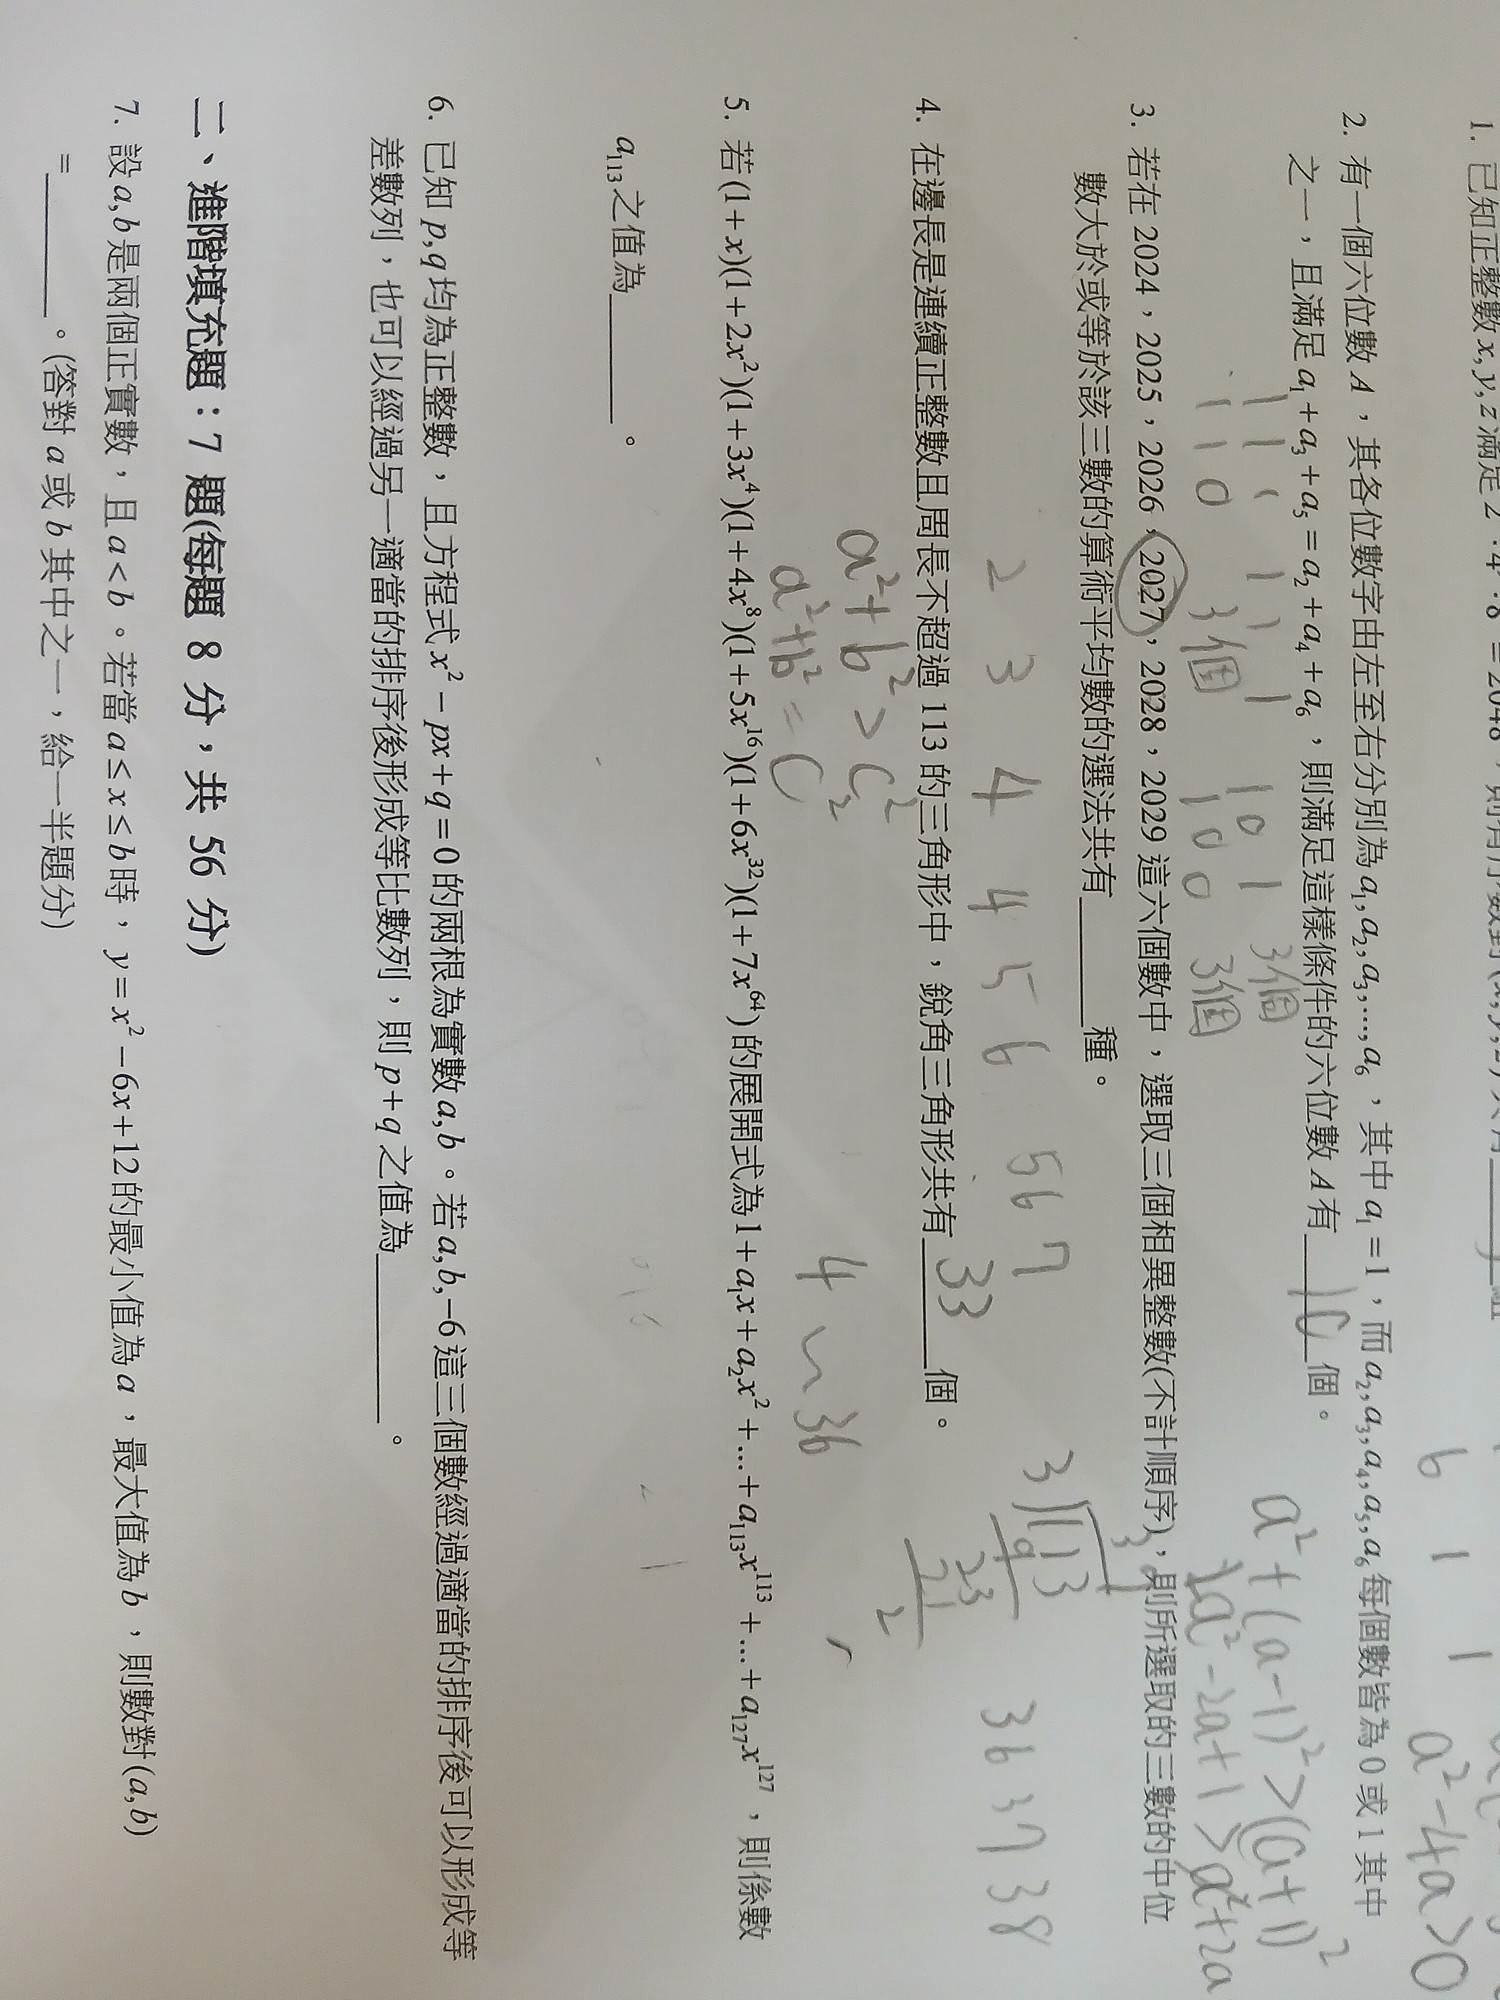 1. 已知正整數 x, y, z 滿足 2 · 4 · 8 = 2048，則有序數對 (x, y, z) 共有
2. 有一個六位數 A，其各位數字由左至右分別為 a₁, a₂, a₃, ..., a₆，其中 a₁ = 1，而 a₂, a₃, a₄, a₅, a₆ 每個數皆為 0 或 1 其中
之一，且滿足 a₁ + a₃ + a₅ = a₂ + a₄ + a₆，則滿足這樣條件的六位數 A 有 10 個。
3. 若在 2024，2025，2026，2027，2028，2029 這六個數中，選取三個相異整數(不計順序)，則所選取的三數的中位
數大於或等於該三數的算術平均數的選法共有______種。
4. 在邊長是連續正整數且周長不超過 113 的三角形中，銳角三角形共有 33 個。
5. 若 (1 + x)(1 + 2x²)(1 + 3x⁴)(1 + 4x⁸)(1 + 5x¹⁶)(1 + 6x³²)(1 + 7x⁶⁴) 的展開式為 1 + a₁x + a₂x² + ... + a₁₁₃x¹¹³ + ... + a₁₂₇x¹²⁷，則係數
a₁₁₃ 之值為______。
6. 已知 p, q 均為正整數，且方程式 x² − px + q = 0 的兩根為實數 a, b。若 a, b, −6 這三個數經過適當的排序後可以形成等
差數列，也可以經過另一適當的排序後形成等比數列，則 p + q 之值為______。
二、進階填充題：7 題(每題 8 分，共 56 分)
7. 設 a, b 是兩個正實數，且 a < b。若當 a ≤ x ≤ b 時，y = x² − 6x + 12 的最小值為 a，最大值為 b，則數對 (a, b)
= ______。(答對 a 或 b 其中之一，給一半題分)
6 1 1
a² − 4a > 0
a² + (a−1)² > (a+1)²
2a² − 2a + 1 > a² + 2a
1 1 1 1 1 1
1 0 1
3個
1 1 0
3個
1 0 0
3個
2 3 4
4 5 6
5 6 7
36 37 38
3
113
9
23
21
2
a² + b² > c²
a² + b² = c²
4 ~ 36